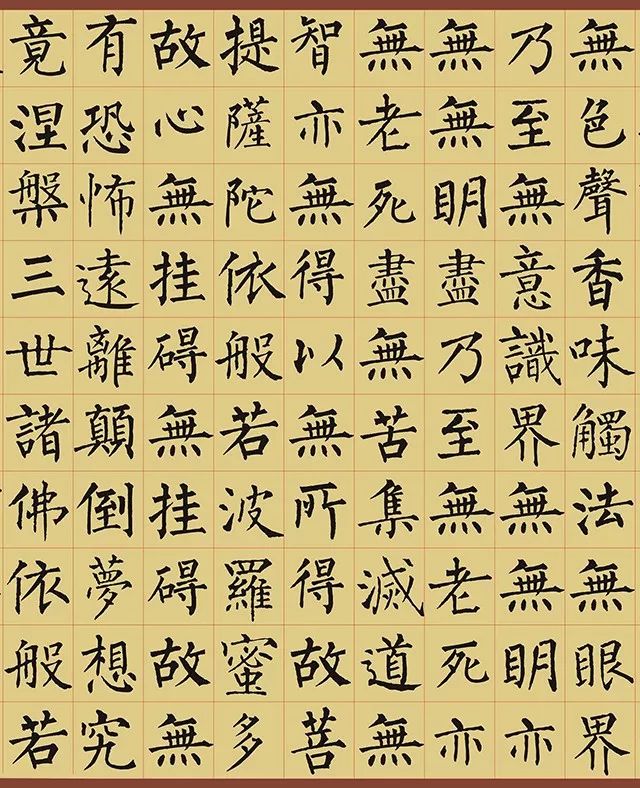 無色聲香味觸法無眼界
乃至無意識界無無明亦
無無明盡乃至無老死亦
無老死盡無苦集滅道無
智亦無得以無所得故菩
提薩陀依般若波羅蜜多
故心無挂碍無挂碍故無
有恐怖遠離顛倒夢想究
竟涅槃三世諸佛依般若